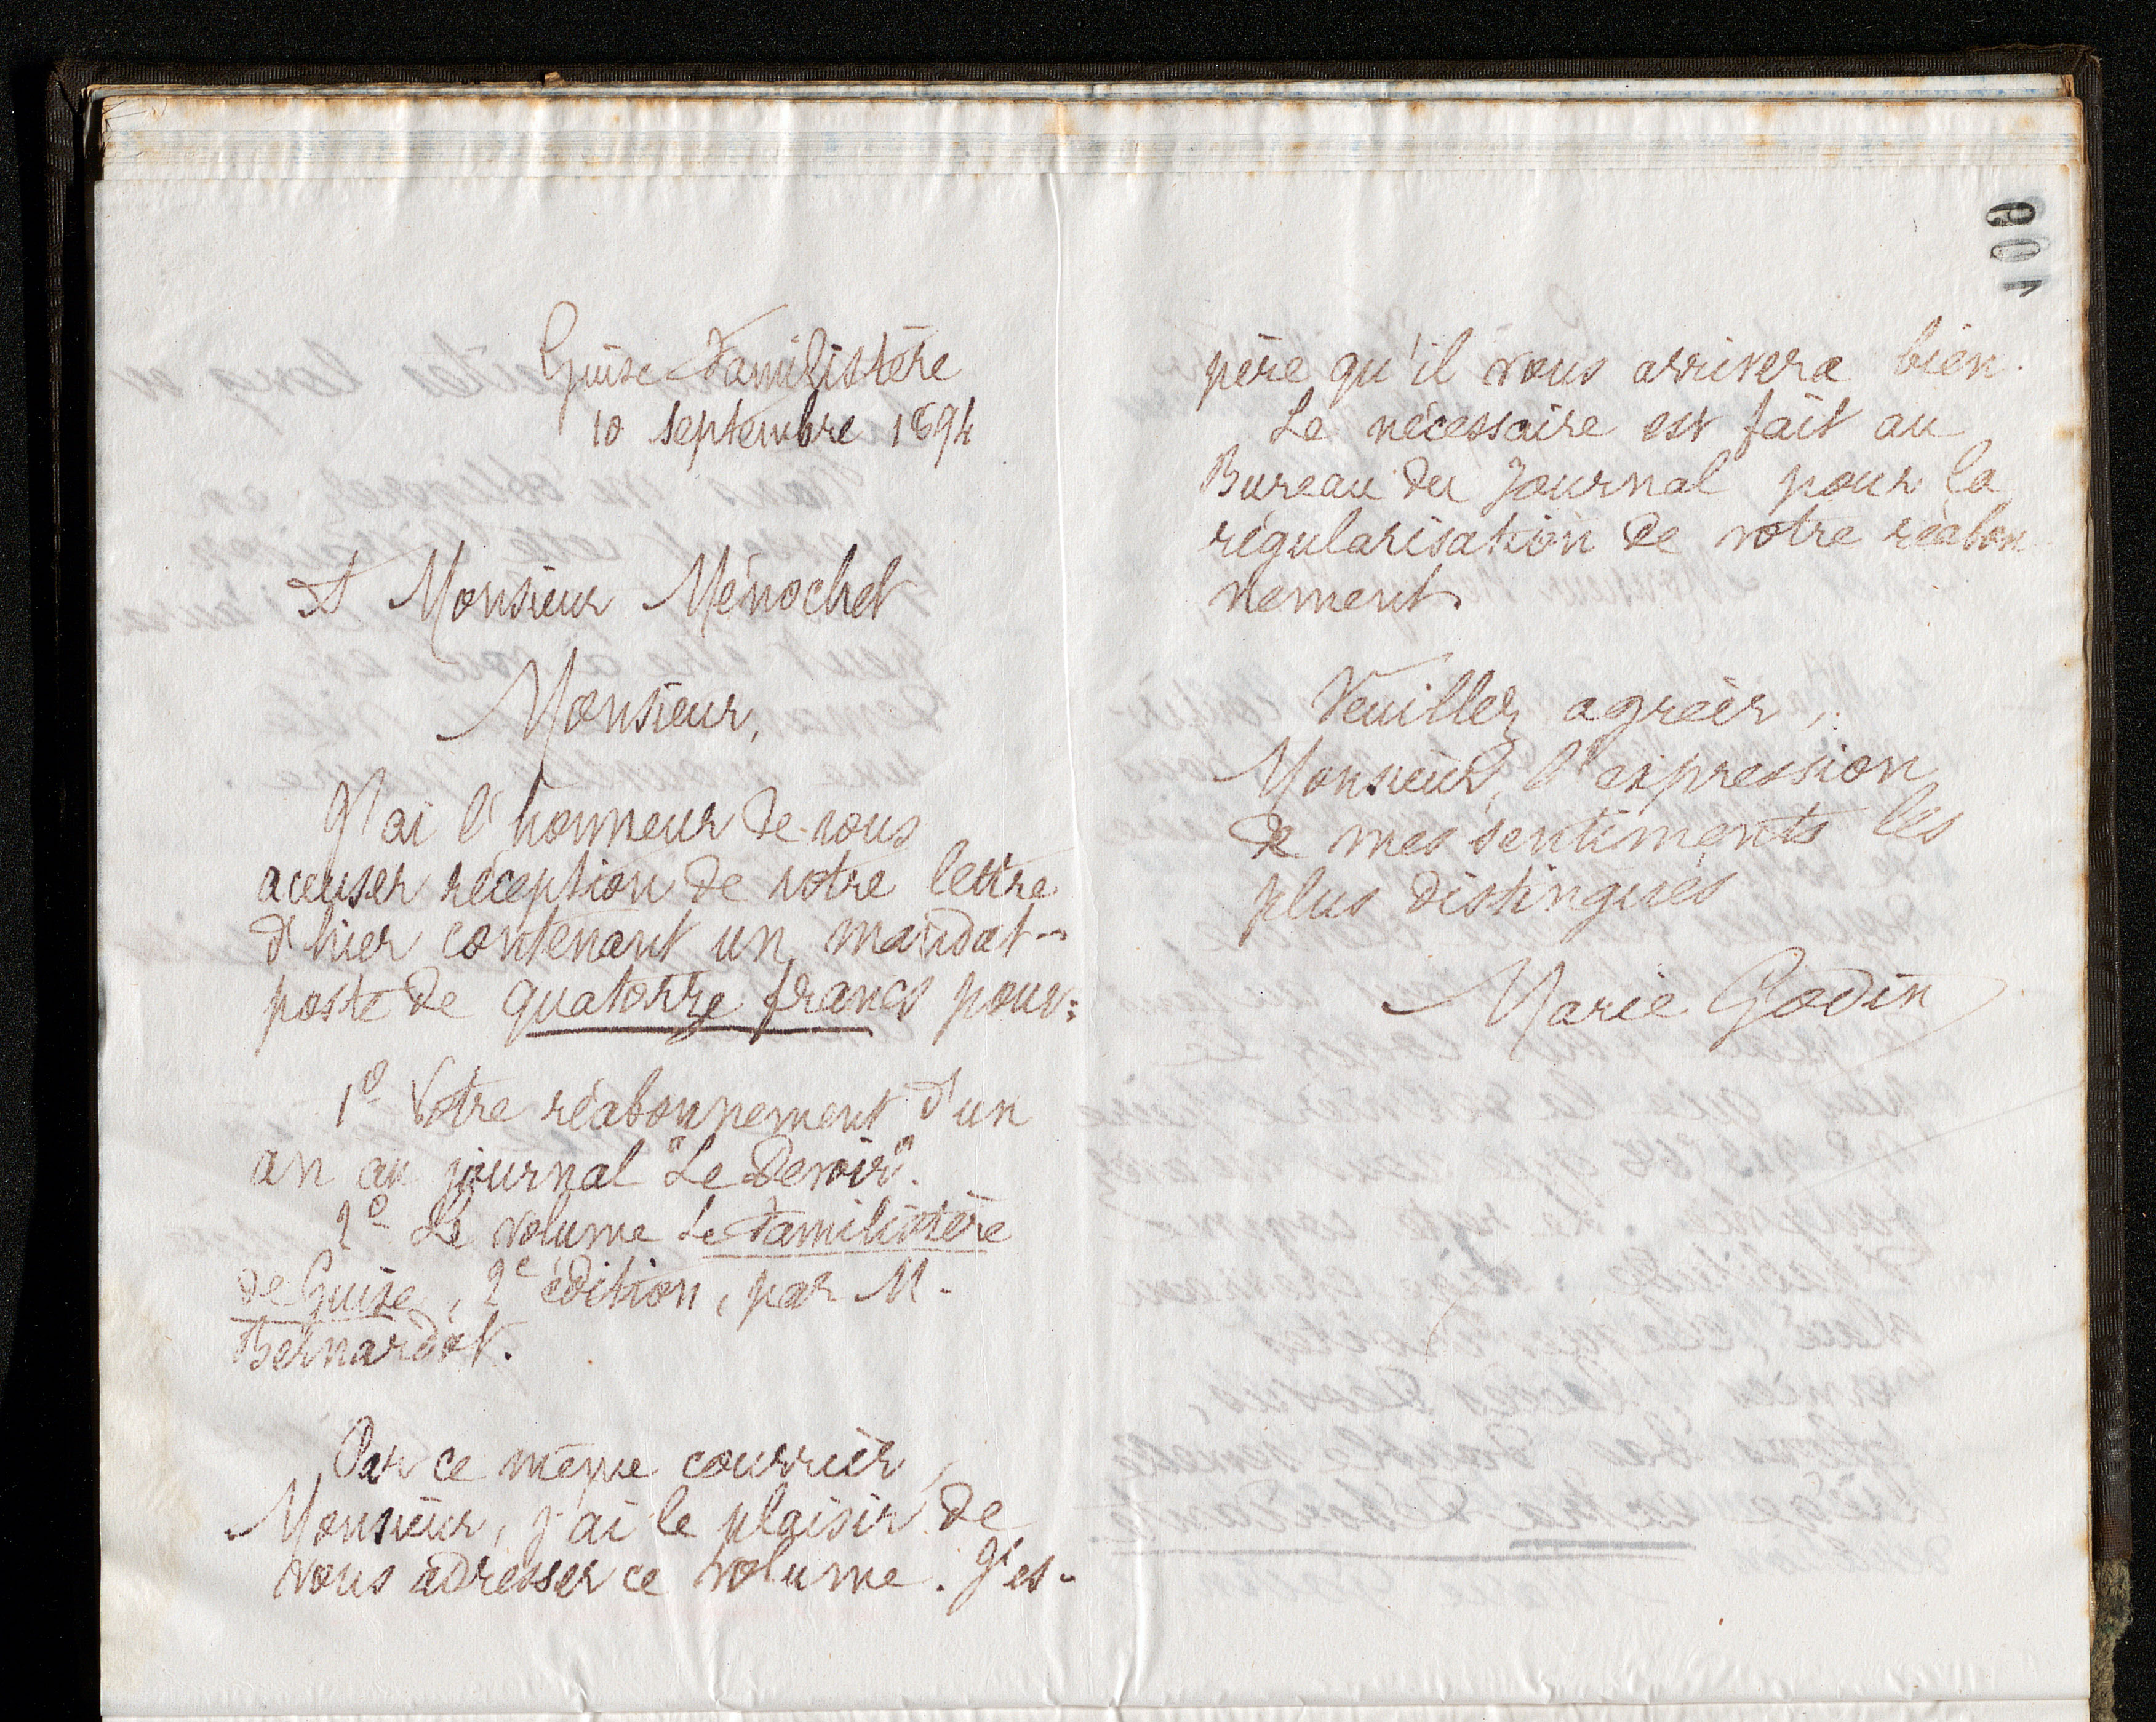 Guise Familistère
10 septembre 1894
A Monsieur Ménochet
Monsieur,
J'ai l'honneur de vous
accuser réception de votre lettre
d'hier contenant un mandat-
poste de quatorze francs pour:
1º Votre réabonnement d'un
an au journal "Le Devoir".
2º Le volume Le Familistère
de Guise, 2e édition, par M.
Bernardot.
Par ce même courrier,
Monsieur, j'ai le plaisir de
vous adresser ce volume. J'es-
père qu'il vous arrivera bien.
Le nécessaire est fait au
Bureau du Journal pour la
régularisation de votre réabon
nement.
Veuillez agréer,
Monsieur, l'expression
de mes sentiments les
plus distingués
Marie Godin
100